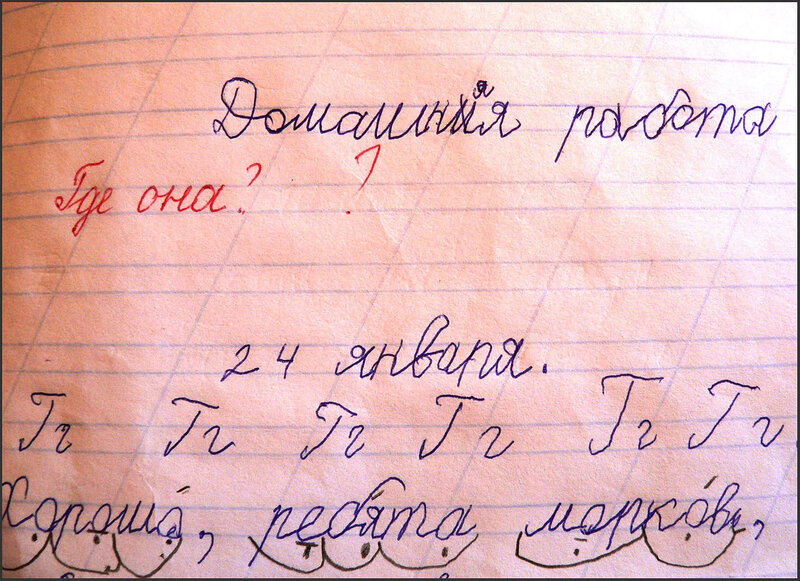 Домашняя работа
Где она? ?
24 января.
Гг Гг Гг Гг Гг Гг
Хорошо, ребята морковь,